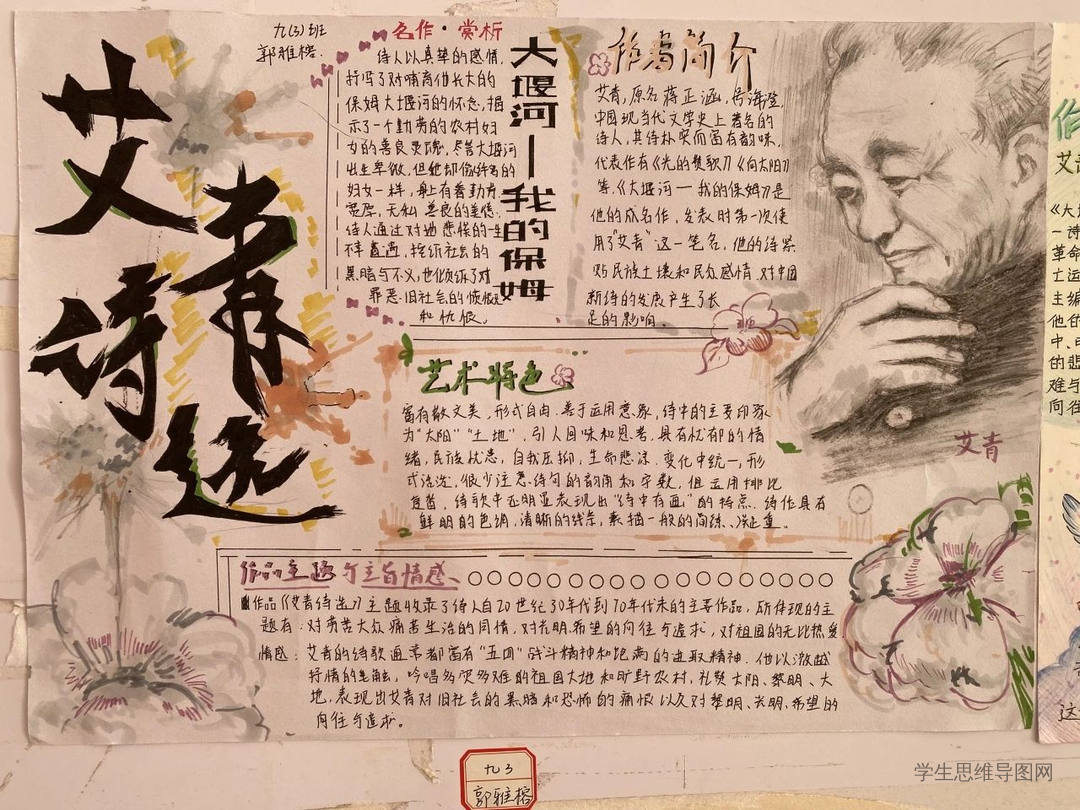 艾青诗选
九(3)班
郭雅榕
名作·赏析
诗人以真挚的感情,
抒写了对哺育他长大的
保姆大堰河的怀念,揭
示了一个勤劳的农村妇
女的善良灵魂,尽管大堰河
出生卑微,但她却像许多的
妇女一样,身上有着勤劳,
宽厚,无私善良的美德.
诗人通过对她悲惨的一生
不幸遭遇,控诉社会的
黑暗与不义,也倾诉了对
罪恶旧社会的愤恨
和仇恨。
大堰河—我的保姆
作者简介
艾青,原名蒋正涵,号海澄,
中国现当代文学史上著名的
诗人,其诗朴实而富有韵味,
代表作有《光的赞歌》《向太阳》
等.《大堰河—我的保姆》是
他的成名作,发表时第一次使
用了"艾青"这一笔名,他的诗紧
贴民族土壤和民众感情,对中国
新诗的发展产生了长
足的影响.
艺术特色
富有散文美,形式自由.善于运用意象,诗中的主要印象
为"太阳""土地",引人回味和思考.具有忧郁的情
绪,民族忧患,自我压抑,生命悲凉.变化中统一,形
式活泼,很少注意诗句的韵脚和字数,但运用排比
复沓,诗歌中还明显表现出"诗中有画"的特点.诗作具有
鲜明的色调,清晰的线条,素描一般的简练、凝重。
艾青
作品主题与主旨情感、
作品《艾青诗选》主题收录了诗人自20世纪30年代到70年代末的主要作品,所体现的主
题有:对劳苦大众痛苦生活的同情,对光明.希望的向往与追求,对祖国的无比热爱
情感:艾青的诗歌通常都富有"五四"战斗精神和饱满的进取精神.他以激越
抒情的笔触,吟唱多灾多难的祖国大地和旷野农村,礼赞太阳、黎明、大
地,表现出艾青对旧社会的黑暗和恐怖的痛恨以及对黎明、光明、希望的
向往与追求。
九3
郭雅榕
作
艾青
《大
一诗
革命
亡运
主编
他的
中、
的悲
难与
向往
这
学生思维导图网